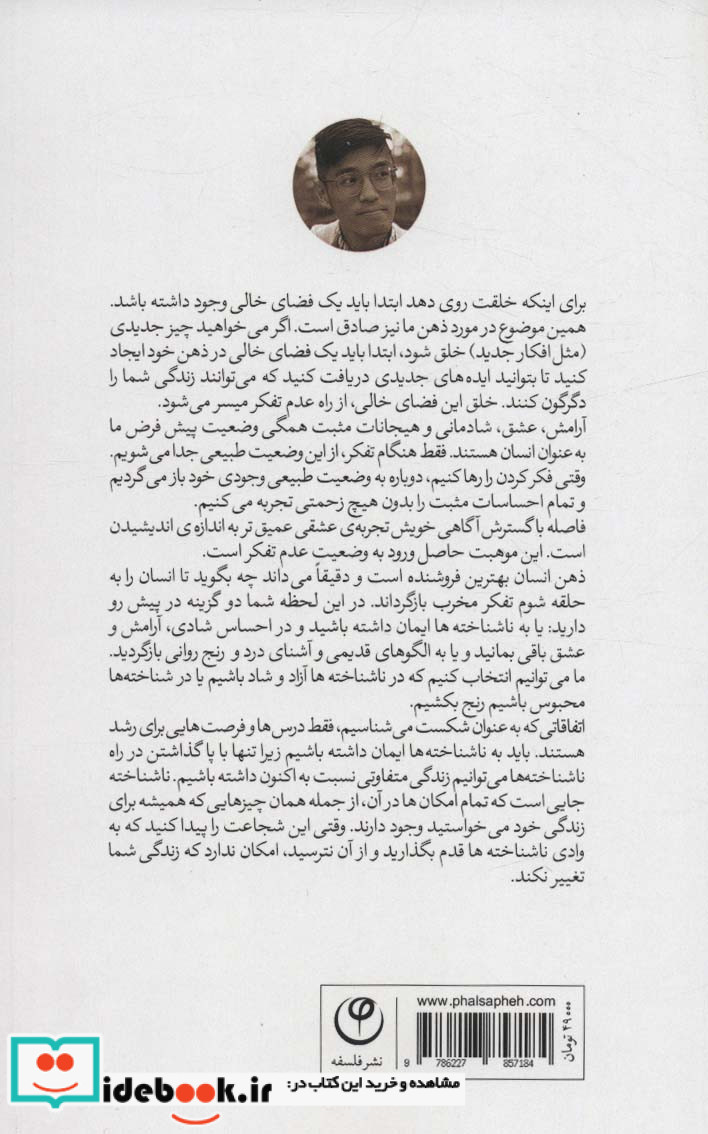 برای اینکه خلقت روی دهد ابتدا باید یک فضای خالی وجود داشته باشد.
همین موضوع در مورد ذهن ما نیز صادق است. اگر می‌خواهید چیز جدیدی
(مثل افکار جدید) خلق شود، ابتدا باید یک فضای خالی در ذهن خود ایجاد
کنید تا بتوانید ایده‌های جدیدی دریافت کنید که می‌توانند زندگی شما را
دگرگون کنند. خلق این فضای خالی، از راه عدم تفکر میسر می‌شود.
آرامش، عشق، شادمانی و هیجانات مثبت همگی وضعیت پیش فرض ما
به عنوان انسان هستند. فقط هنگام تفکر، از این وضعیت طبیعی جدا می‌شویم.
وقتی فکر کردن را رها کنیم، دوباره به وضعیت طبیعی وجودی خود باز می‌گردیم
و تمام احساسات مثبت را بدون هیچ زحمتی تجربه می‌کنیم.
فاصله با گسترش آگاهی خویش تجربه‌ی عشقی عمیق تر به اندازه ی اندیشیدن
است. این موهبت حاصل ورود به وضعیت عدم تفکر است.
ذهن انسان بهترین فروشنده است و دقیقاً می‌داند چه بگوید تا انسان را به
حلقه شوم تفکر مخرب بازگرداند. در این لحظه شما دو گزینه در پیش رو
دارید: یا به ناشناخته ها ایمان داشته باشید و در احساس شادی، آرامش و
عشق باقی بمانید و یا به الگوهای قدیمی و آشنای درد و رنج روانی بازگردید.
ما می‌توانیم انتخاب کنیم که در ناشناخته ها آزاد و شاد باشیم یا در شناخته‌ها
محبوس باشیم رنج بکشیم.
اتفاقاتی که به عنوان شکست می‌شناسیم، فقط درس‌ها و فرصت‌هایی برای رشد
هستند. باید به ناشناخته‌ها ایمان داشته باشیم زیرا تنها با پا گذاشتن در راه
ناشناخته‌ها می‌توانیم زندگی متفاوتی نسبت به اکنون داشته باشیم. ناشناخته
جایی است که تمام امکان ها در آن، از جمله همان چیزهایی که همیشه برای
زندگی خود می‌خواستید وجود دارند. وقتی این شجاعت را پیدا کنید که به
وادی ناشناخته ها قدم بگذارید و از آن نترسید، امکان ندارد که زندگی شما
تغییر نکند.
www.phalsapheh.com
۴۹۰۰۰ تومان
نشر فلسفه
9 786227 857184
مشاهده و خرید این کتاب در:
idebook.ir